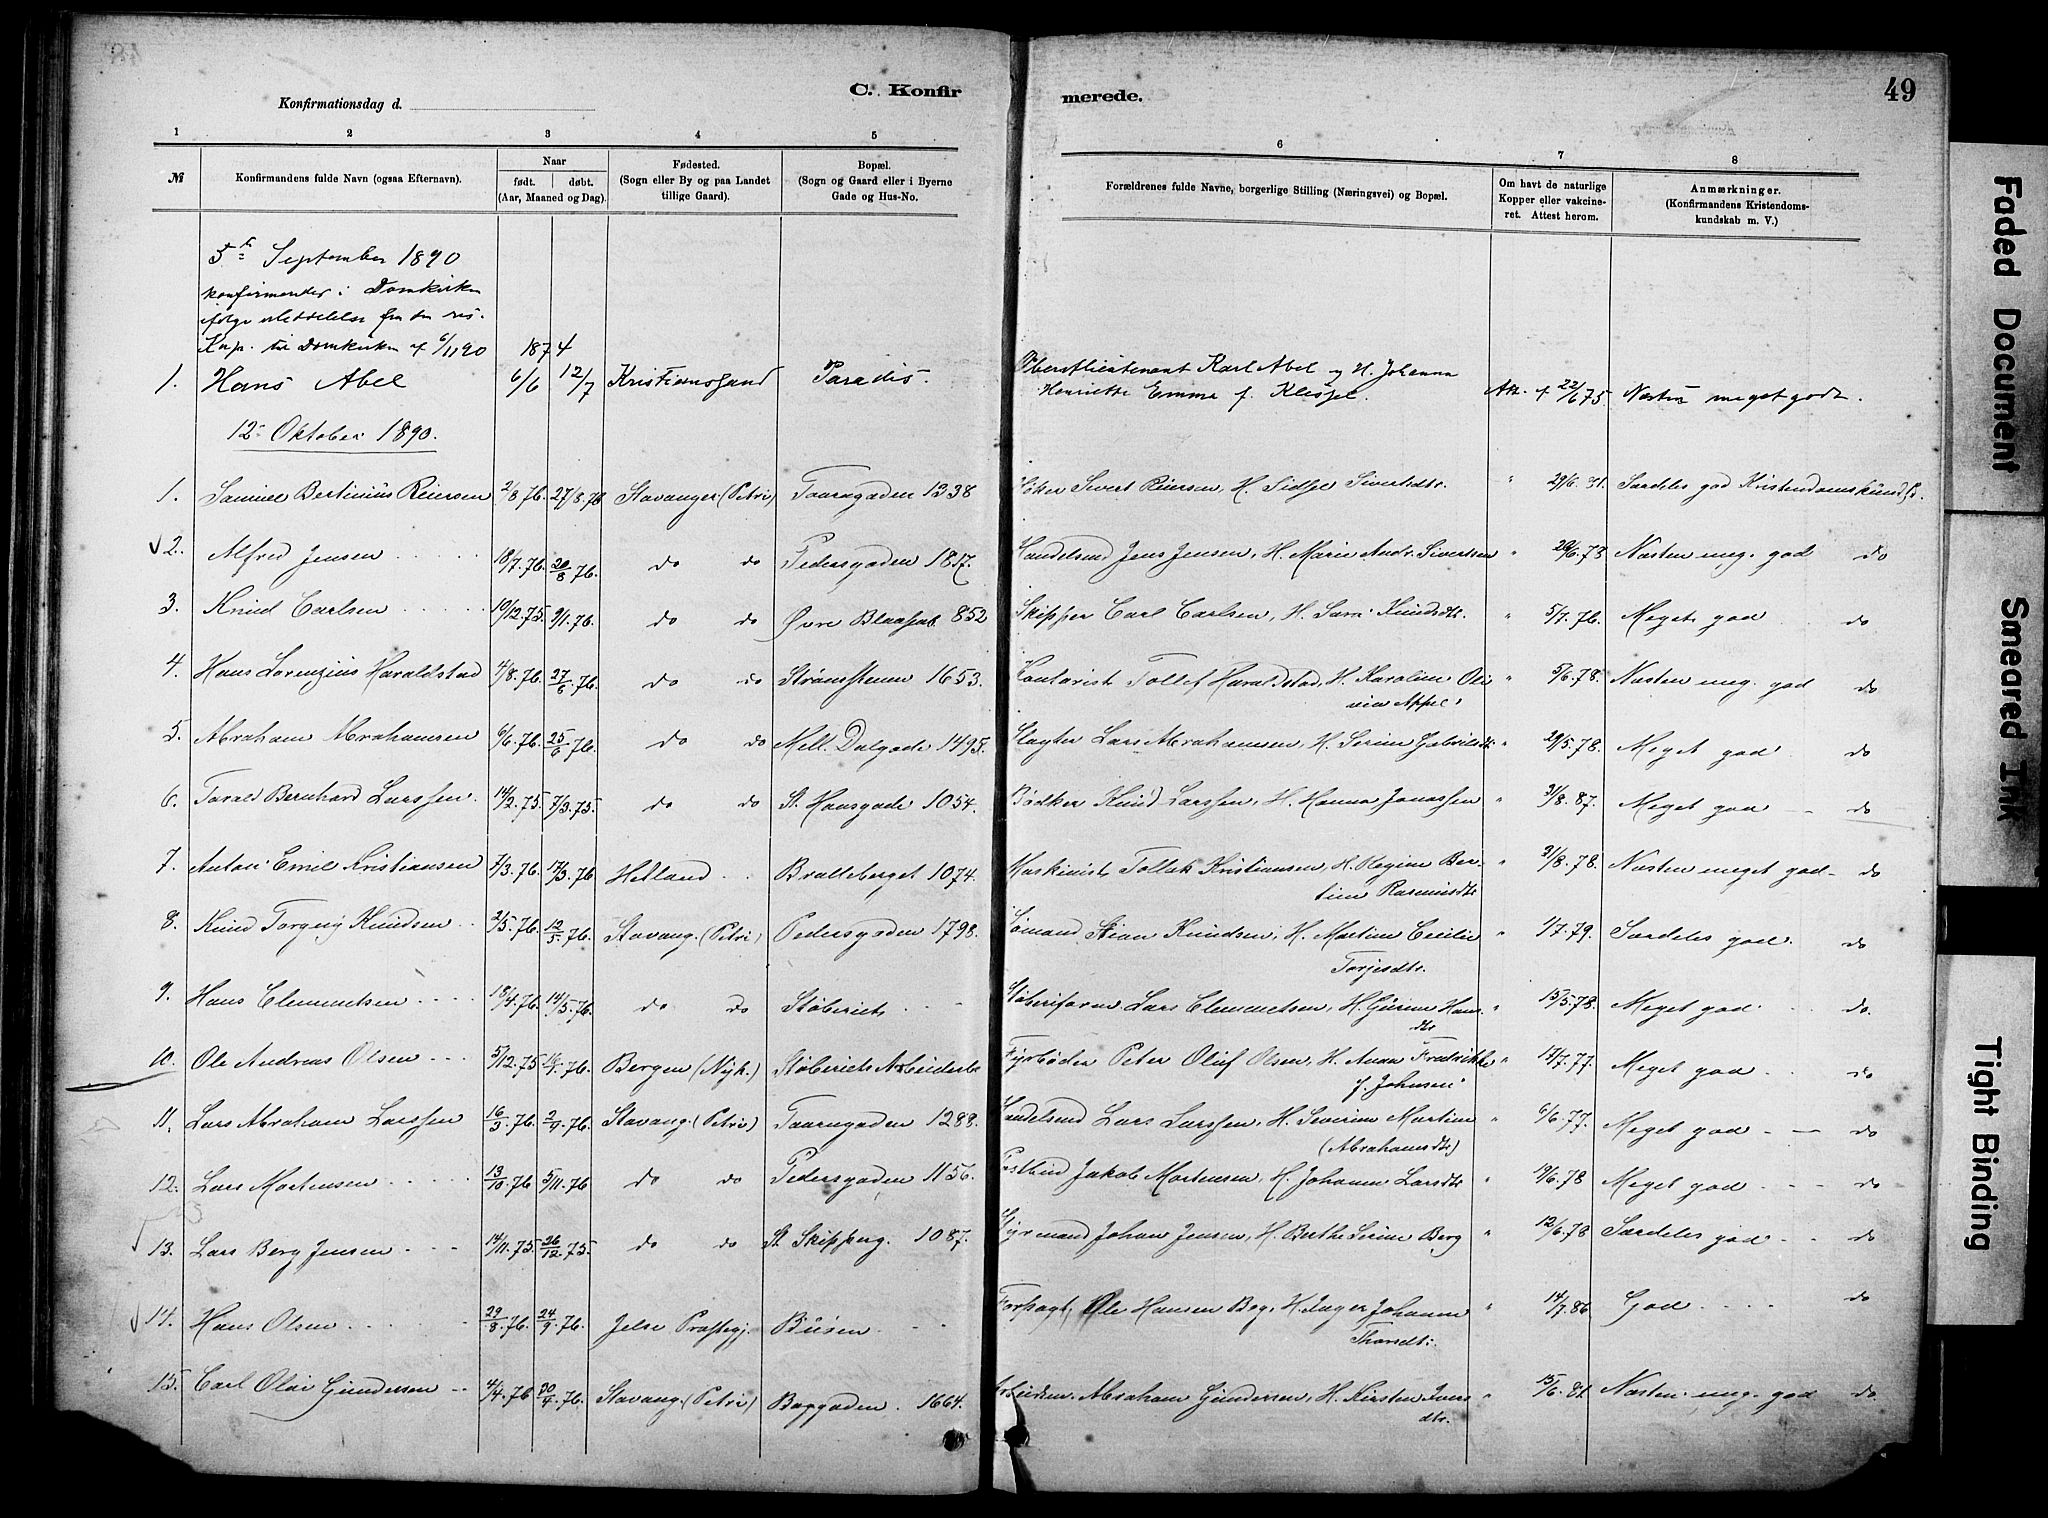 C. Konfir
merede.
49
Konfirmationsdag d.
1 2 3 4 5 6 7 8
№ Konfirmandens fulde Navn (ogsaa Efternavn). Naar født. døbt. (Aar, Maaned og Dag). Fødested. (Sogn eller By og paa Landet tillige Gaard). Bopæl. (Sogn og Gaard eller i Byerne Gade og Hus-No. Forældrenes fulde Navne, borgerlige Stilling (Næringsvei) og Bopæl. Om havt de naturlige Kopper eller vakcineret. Attest herom. Anmærkninger. (Konfirmandens Kristendomskundskab m. V.)
5te September 1890
konfirmander i Domkirken
ifølge Meddelelse fra den res.
Kap. til Domkirken af 6/11 90 1874
1. Hans Abel 6/6 12/7 Kristianssand Paradis. Oberstlieutenant Karl Abel og H. Johanna
Henriette Emma f. Att. af 22/6 75. Næsten meget godt.
12 Oktober 1890.
1. Samuel Bertinius Reiersen 2/8.76. 27/8.76 Stavanger (Petri) Taarngaden 1338 Høker Sivert Reiersen, H. Sidsel Sivertsdtr. " 29/6.81. Særdeles god Kristendomskundsk.
2. Alfred Jensen 18/7.76. 20/8.76. do do Pedersgaden 1817. Handelsmd Jens Jensen, H. Marie Andr. Sivertsen " 28/6.73 Næsten meg. god do
3. Knud Carlsen 19/12.75. 9/1.76. do do Øvre Blaasab. 852 Skipper Carl Carlsen, H. Sara Knudsdtr. " 5/7.76. Megets god do
4. Hans Lorenzius Haraldstad 4/8.76. 27/6.76. do do Strømstenen 1653. Kontorist Tollef Haraldstad, H. Karoline Oli
via Appel. " 5/6.78. Næsten meg. god do
5. Abraham Abrahamsen 6/6.76. 25/6.76. do do Mell. Dalgade 1495. Slagter Lars Abrahamsen, H. Serine Gabrielsdtr " 29/5.78. Meget god do
6. Tarald Bernhard Larssen. 14/2.75. 7/3.75. do do St. Hansgade 1054. Bødker Knud Larssen, H. Hanna Jonassen " 31/8.87. Meget god do
7. Anton Emil Kristiansen 7/3.76. 17/3.76 Helland Bratteberget 1074. Maskinist Tollak Kristiansen, H. Regine Ber-
tine Rasmusdtr " 31/8.78. Næsten meget god do
8. Knud Torgrig Knudsen 2/5.76. 12/5.76. Stavang. (Petri) Pedersgaden 1798. Sømand Stian Knudsen, H. Martine Cecilie
Torjesdtr. " 1/7.79. Særdeles god. do
9. Hans Clementsen 18/4.76. 14/5.76. do do Støberiets Støberiform. Lars Clementsen, H. Gurine Hans-
dtr " 15/5.78. Meget god do.
10. Ole Andreas Olsen 5/12.75. 16/1.76. Bergen (Nyk.) Støberiets Arbeiderb Fyrbøder Peter Oluf Olsen, H. Anna Fredrikke
f. Johnsen " 17/7.77. Meget god do
11. Lars Abraham Larssen 16/3.76. 2/4.76. Stavang. (Petri) Taarngaden 1288. Handelsmd Lars Larssen, H. Severine Martine
(Abrahamsdtr) " 6/6.77. Meget god do
12. Lars Mortensen 13/10.76 5/11.76 do do Pedersgaden 1156. Jakob Mortensen, H. Johanne Larsdtr " 19/6.78 Meget god do
13. Lars Berg Jensen 14/11.75. 26/12.75. do do St. Skipperg. 1087. Styrmand Johan Jensen, H. Berthe Serine Berg " 12/6.78 Særdeles god do
14. Hans Olsen 29/8.76. 24/9.76. Jelse Præstegj. Buøen Forpagt. Ole Hansen Bøg, H. Inger Johanne
Thorsdtr. " 14/7.86. God do
15. Carl Olai Gundersen 4/4.76 30/4.76. Stavang. (Petri) Bakgaden 1664. Arbeidsm. Abraham Gundersen, H. Kirsten Ivers
dtr. " 15/6.81. Næsten meg. god do.
Faded Document
Smeared Ink
Tight Binding